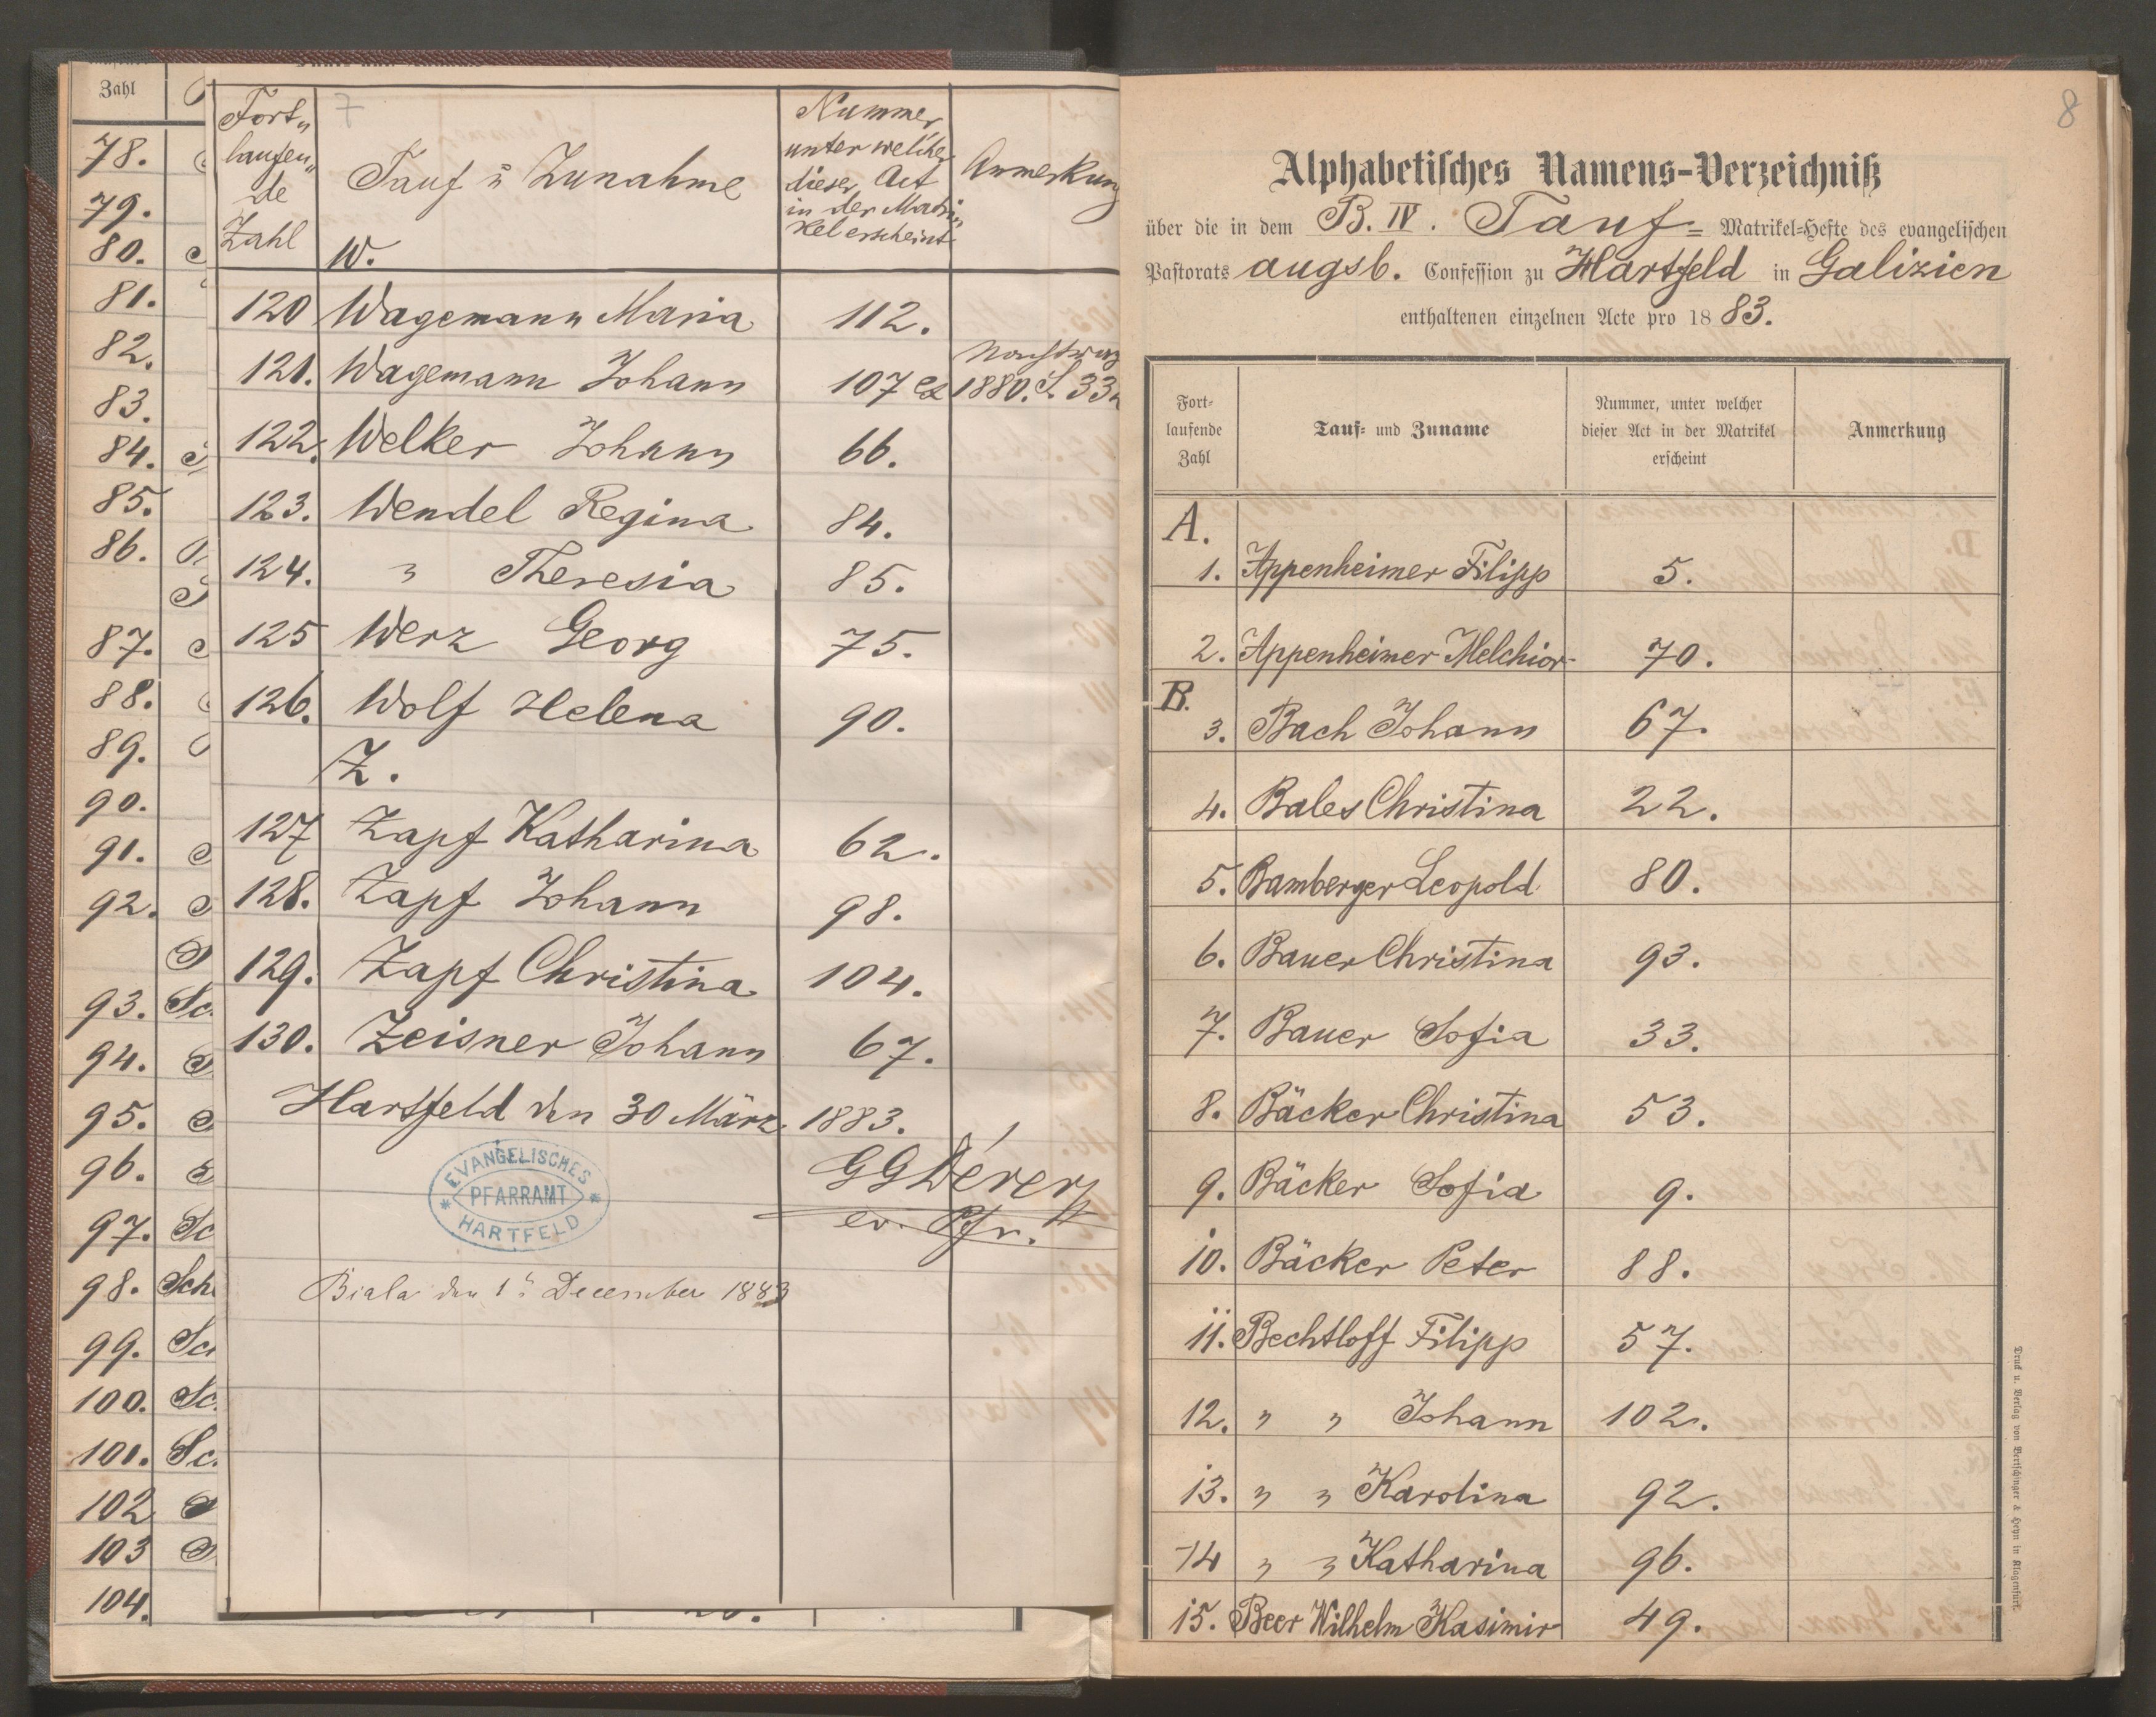 Zahl
78.
79.
80.
81.
82.
83.
84.
85.
86.
87.
88.
89.
90.
91.
92.
93. Sc
94.
95.
96.
97. Sc
98. Sch
99. Sc
100. Sc
101. Sc
102
103
104.
7
Fort„
laufen„
de
Zahl
Tauf u Zunahme
W.
Nummer
unter welcher
dieser Act
in der Matri„
kel erscheint
Anmerkung
120 Wagemann Maria 112.
121. Wagemann Johann 107 1880. S. 33
122. Welker Johann 66.
123. Wendel Regina 84.
124. " Theresia 85.
125 Werz Georg 75.
126. Wolf Helena 90.
Z.
127 Zapf Katharina 62.
128. Zapf Johann 98.
129. Zapf Christina 104.
130. Zeisner Johann 67.
Hartfeld den 30 März 1883.
EVANGELISCHES
PFARRAMT
HARTFELD
ev. Pfr.
Biala den 1n December 1883
8
Alphabetisches Namens-Verzeichniß
über die in dem B. IV. Tauf= Matrikel=Hefte des evangelischen
Pastorats augsb. Confession zu Hartfeld in Galizien
enthaltenen einzelnen Acte pro 1883.
Fort=
laufende
Zahl
Tauf= und Zuname
Nummer, unter welcher
dieser Act in der Matrikel
erscheint
Anmerkung
A.
1. Appenheimer Filipp 5.
2. Appenheimer Melchior 70.
B.
3. Bach Johann 67.
4. Bales Christina 22.
5. Bamberger Leopold 80.
6. Bauer Christina 93.
7. Bauer Sofia 33.
8. Bäcker Christina 53.
9. Bäcker Sofia 9.
10. Bäcker Peter 88.
11. Bechtloff Filipp 57.
12. " " Johann 102.
13. " " Karolina 92.
14 " " Katharina 96.
15. Beer Wilhelm Kasimir 49.
Druck u. Verlag von Bertschinger & Heyn in Klagenfurt.